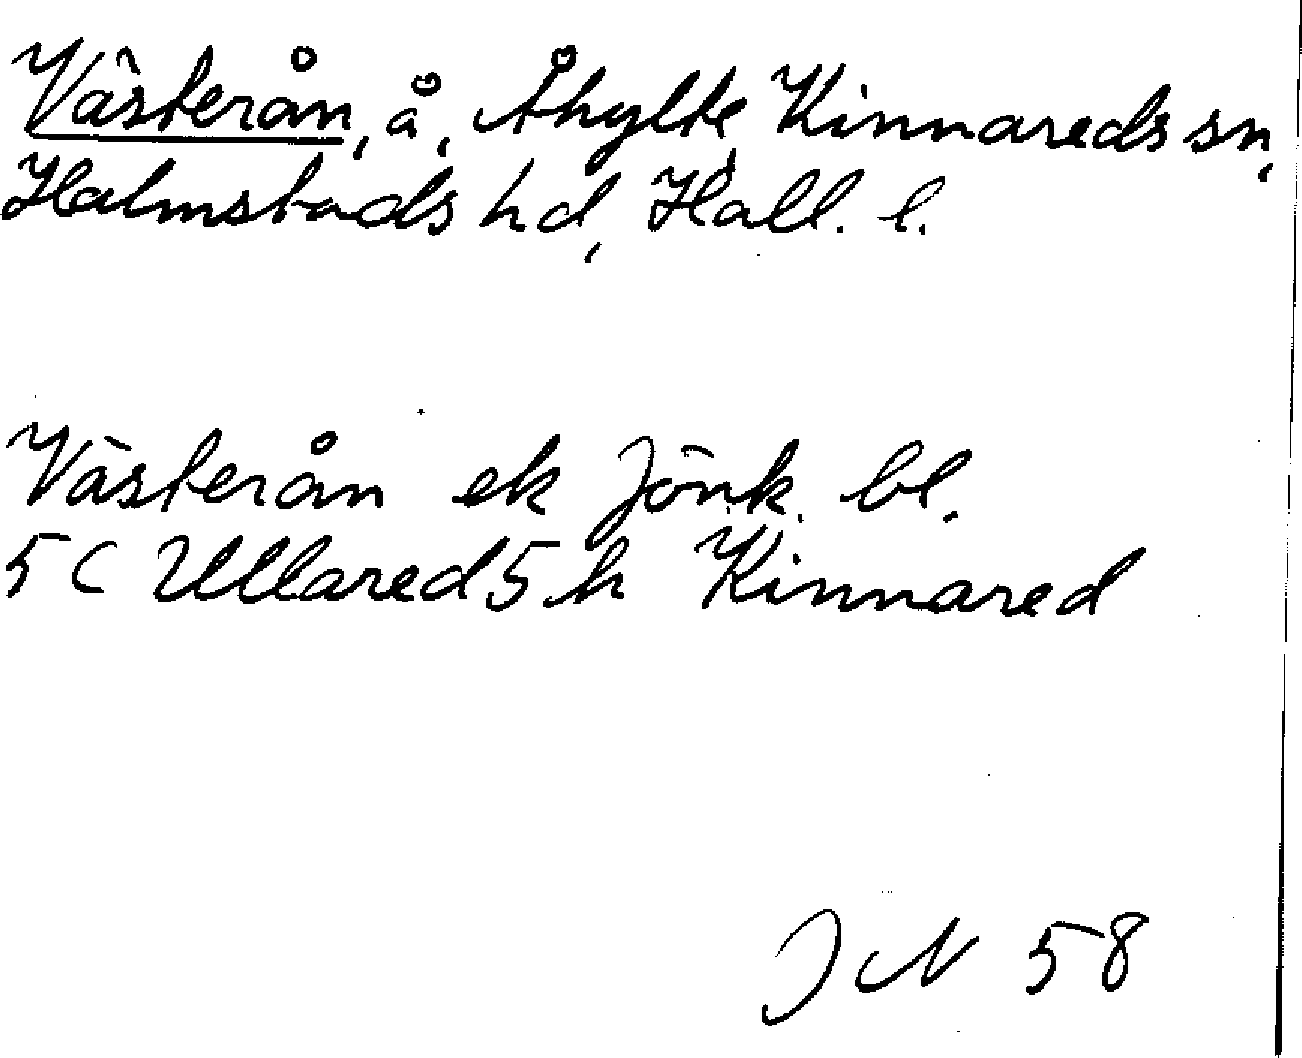 Västerån, å, Åhylte, Kinnareds sn,
Halmstads hd, Hall. l.
Västerån ek Jönk. bl.
5 C Ullared 5 h Kinnared
JN 58